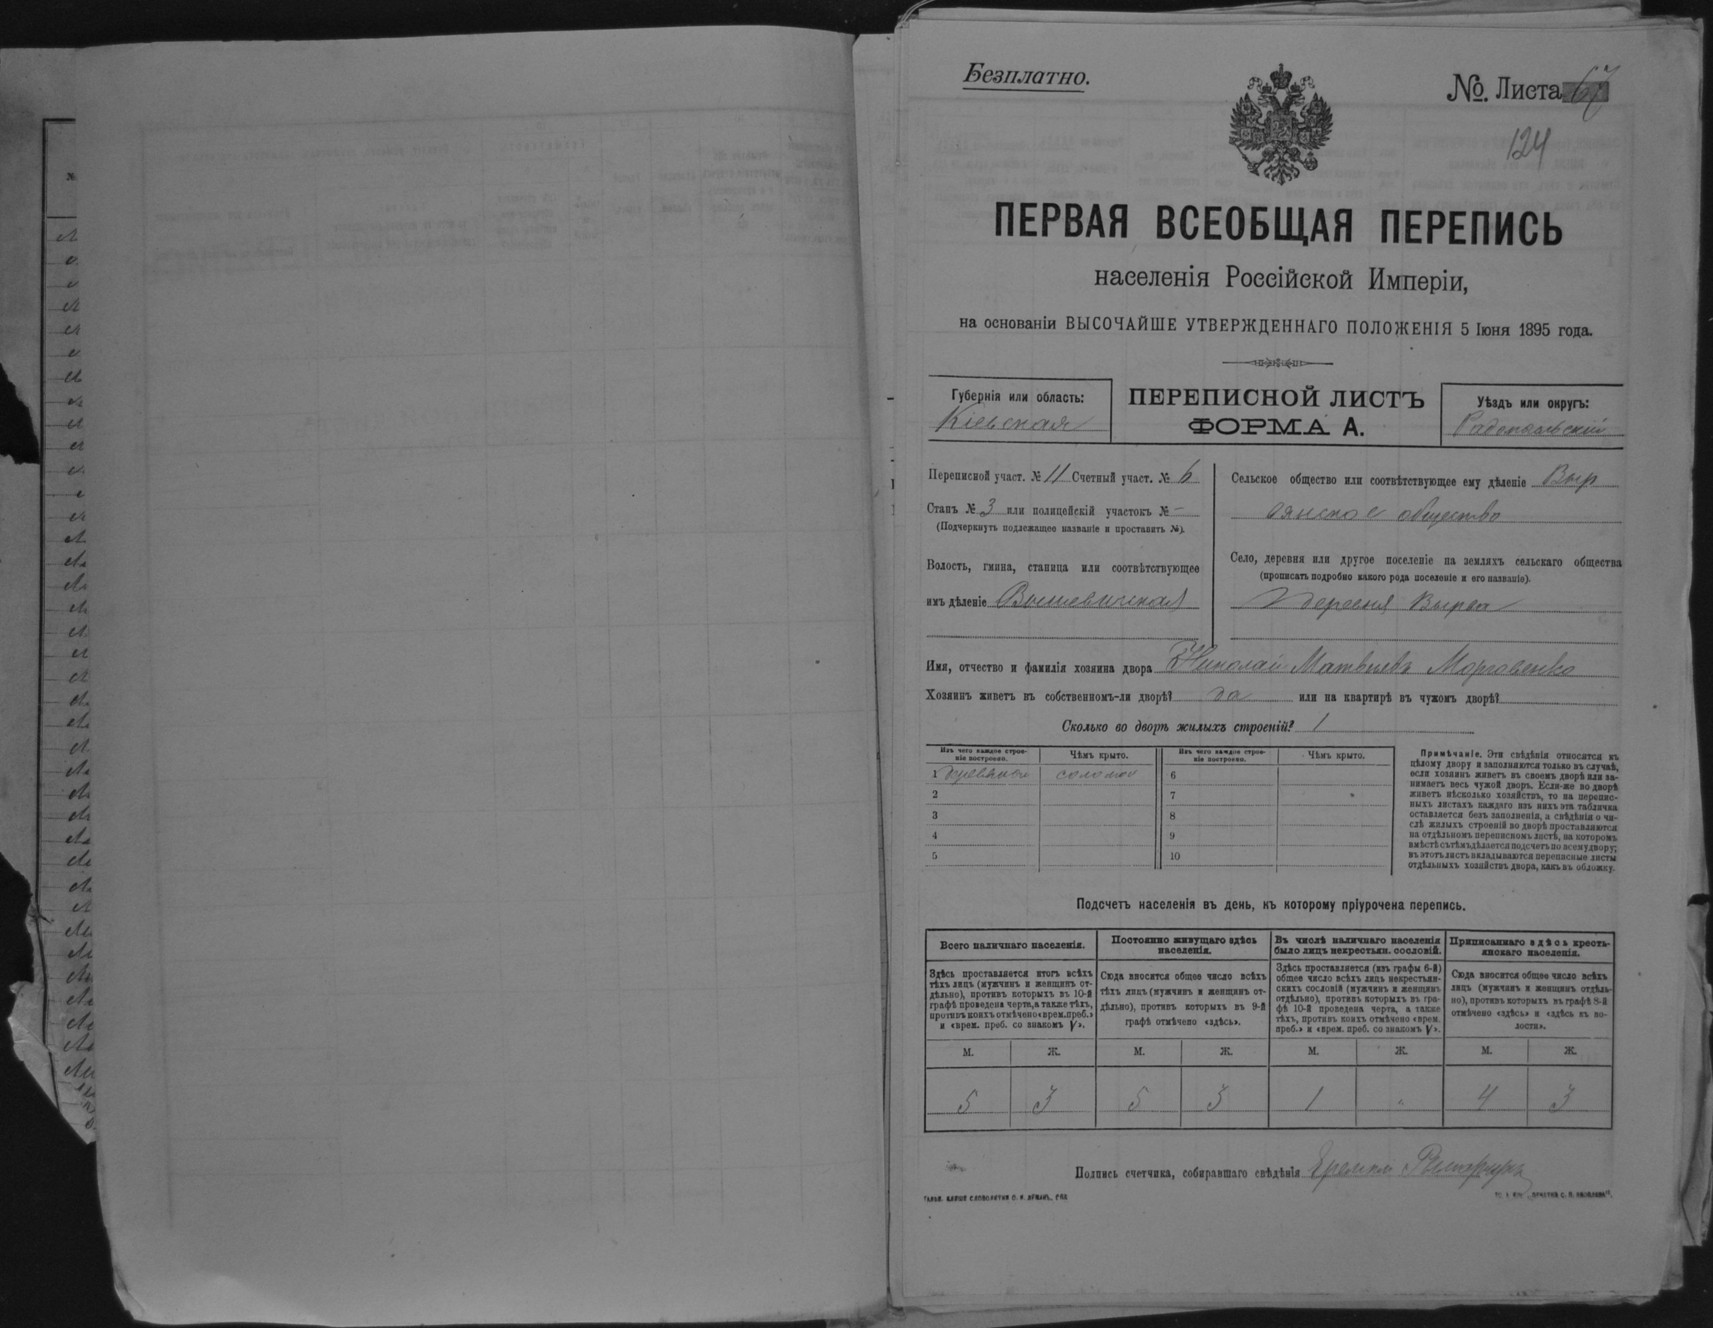 Безплатно.
№. Листа 67
124
ПЕРВАЯ ВСЕОБЩАЯ ПЕРЕПИСЬ
населенія Россійской Имперіи,
на основаніи ВЫСОЧАЙШЕ УТВЕРЖДЕННАГО ПОЛОЖЕНІЯ 5 Іюня 1895 года.
Губернія или область:
Кіевская
ПЕРЕПИСНОЙ ЛИСТЪ
ФОРМА А.
Уѣздъ или округъ:
Радомысльскій
Переписной участ. № 11 Счетный участ. № 6
Станъ № 3 или полицейскій участокъ № –
(Подчеркнуть подлежащее названіе и проставить №).
Волость, гмина, станица или соотвѣтствующее
имъ дѣленіе Вышевичская
Сельское общество или соотвѣтствующее ему дѣленіе Выр
вянское общество
Село, деревня или другое поселеніе на земляхъ сельскаго общества
(прописать подробно какого рода поселеніе и его названіе).
Деревня Вырва
Имя, отчество и фамилія хозяина двора Николай Матвѣевъ Морговенко
Хозяинъ живетъ въ собственномъ-ли дворѣ? да или на квартирѣ въ чужомъ дворѣ?
Сколько во дворѣ жилыхъ строеній? 1
Изъ чего каждое строе-
ніе построено.
Чѣмъ крыто.
Изъ чего каждое строе-
ніе построено.
Чѣмъ крыто.
1 соломой 6
2 7
3 8
4 9
5 10
Примѣчаніе. Эти свѣдѣнія относятся къ
цѣлому двору и заполняются только въ случаѣ,
если хозяинъ живетъ въ своемъ дворѣ или за-
нимаетъ весь чужой дворъ. Если-же во дворѣ
живетъ нѣсколько хозяйствъ, то на перепис-
ныхъ листахъ каждаго изъ нихъ эта табличка
оставляется безъ заполненія, а свѣдѣнія о чи-
слѣ жилыхъ строеній во дворѣ проставляются
на отдѣльномъ переписномъ листѣ, на которомъ
вмѣстѣ съ тѣмъ дѣлается подсчетъ по всему двору;
въ этотъ листъ вкладываются переписные листы
отдѣльныхъ хозяйствъ двора, какъ въ обложку.
Подсчетъ населенія въ день, къ которому пріурочена перепись.
Всего наличнаго населенія.
Здѣсь проставляется итогъ всѣхъ
тѣхъ лицъ (мужчинъ и женщинъ от-
дѣльно), противъ которыхъ въ 10-й
графѣ проведена черта, а также тѣхъ,
противъ коихъ отмѣчено «врем. преб.»
и «врем. преб. со знакомъ V».
Постоянно живущаго здѣсь
населенія.
Сюда вносится общее число всѣхъ
тѣхъ лицъ (мужчинъ и женщинъ от-
дѣльно), противъ которыхъ въ 9-й
графѣ отмѣчено «здѣсь».
Въ числѣ наличнаго населенія
было лицъ некрестьян. сословій.
Здѣсь проставляется (изъ графы 6-й)
общее число всѣхъ лицъ некрестьян-
скихъ сословій (мужчинъ и женщинъ
отдѣльно), противъ которыхъ въ гра-
фѣ 10-й проведена черта, а также
тѣхъ, противъ коихъ отмѣчено «врем.
преб.» и «врем. преб. со знакомъ V».
Приписаннаго здѣсь кресть-
янскаго населенія.
Сюда вносится общее число всѣхъ
лицъ (мужчинъ и женщинъ отдѣль-
но), противъ которыхъ въ графѣ 8-й
отмѣчено «здѣсь» и «здѣсь въ во-
лости».
М. Ж. М. Ж. М. Ж. М. Ж.
5 3 5 3 1 „ 4 3
Подпись счетчика, собиравшаго свѣдѣнія